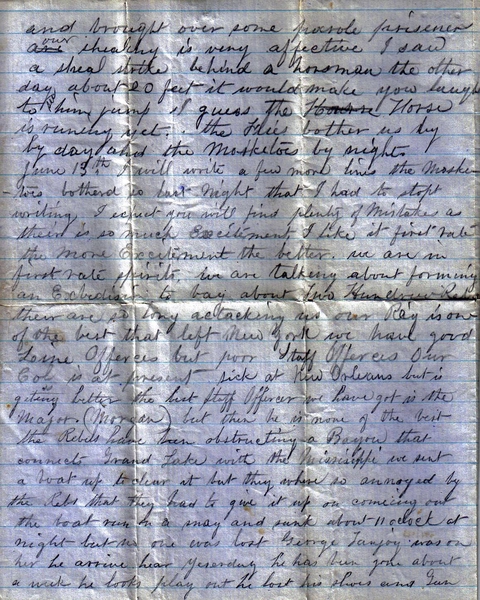 and brought over some parole prisoner
our shealing is very affective I saw
a sheal strike behind a horsman the other
day about 20 feet it would make you laugh
to him jump I guess the Horse
is runing yet. the Flies bother us by
by day and the Musketoes by nights
June 13th I will write a few more lines the Muske-
-toes botherd so last Night that I had to stopt
writing I expect you will find plenty of Mistakes as
their is so much Excitement I like it first rate
the more Excitement the better. we are in
first rate spirits, We are talking about forming
an to bag about Two Hundred Rebs
their are so long attacking us our Reg is one
of the best that left New York we have good
Leine Offerces but poor Staff Offerces Our
Col is at present sick at New Orleans but is
geting better the best Staff Offercer we have got is the
Major (Morgan) but then he is none of the best
the Rebels have been obstructing a Bayou that
connects Grand Lake with the Mississippi we sent
a boat up to clear it but they where so annoyed by
the Rebs that they had to give it up on comeing out
the boat run on a snag and sunk about 11 oclock at
night but no one was lost George was on
her he arrive hear yesterday he has been gone about
a week he looks play out he lost his shoes and Gun